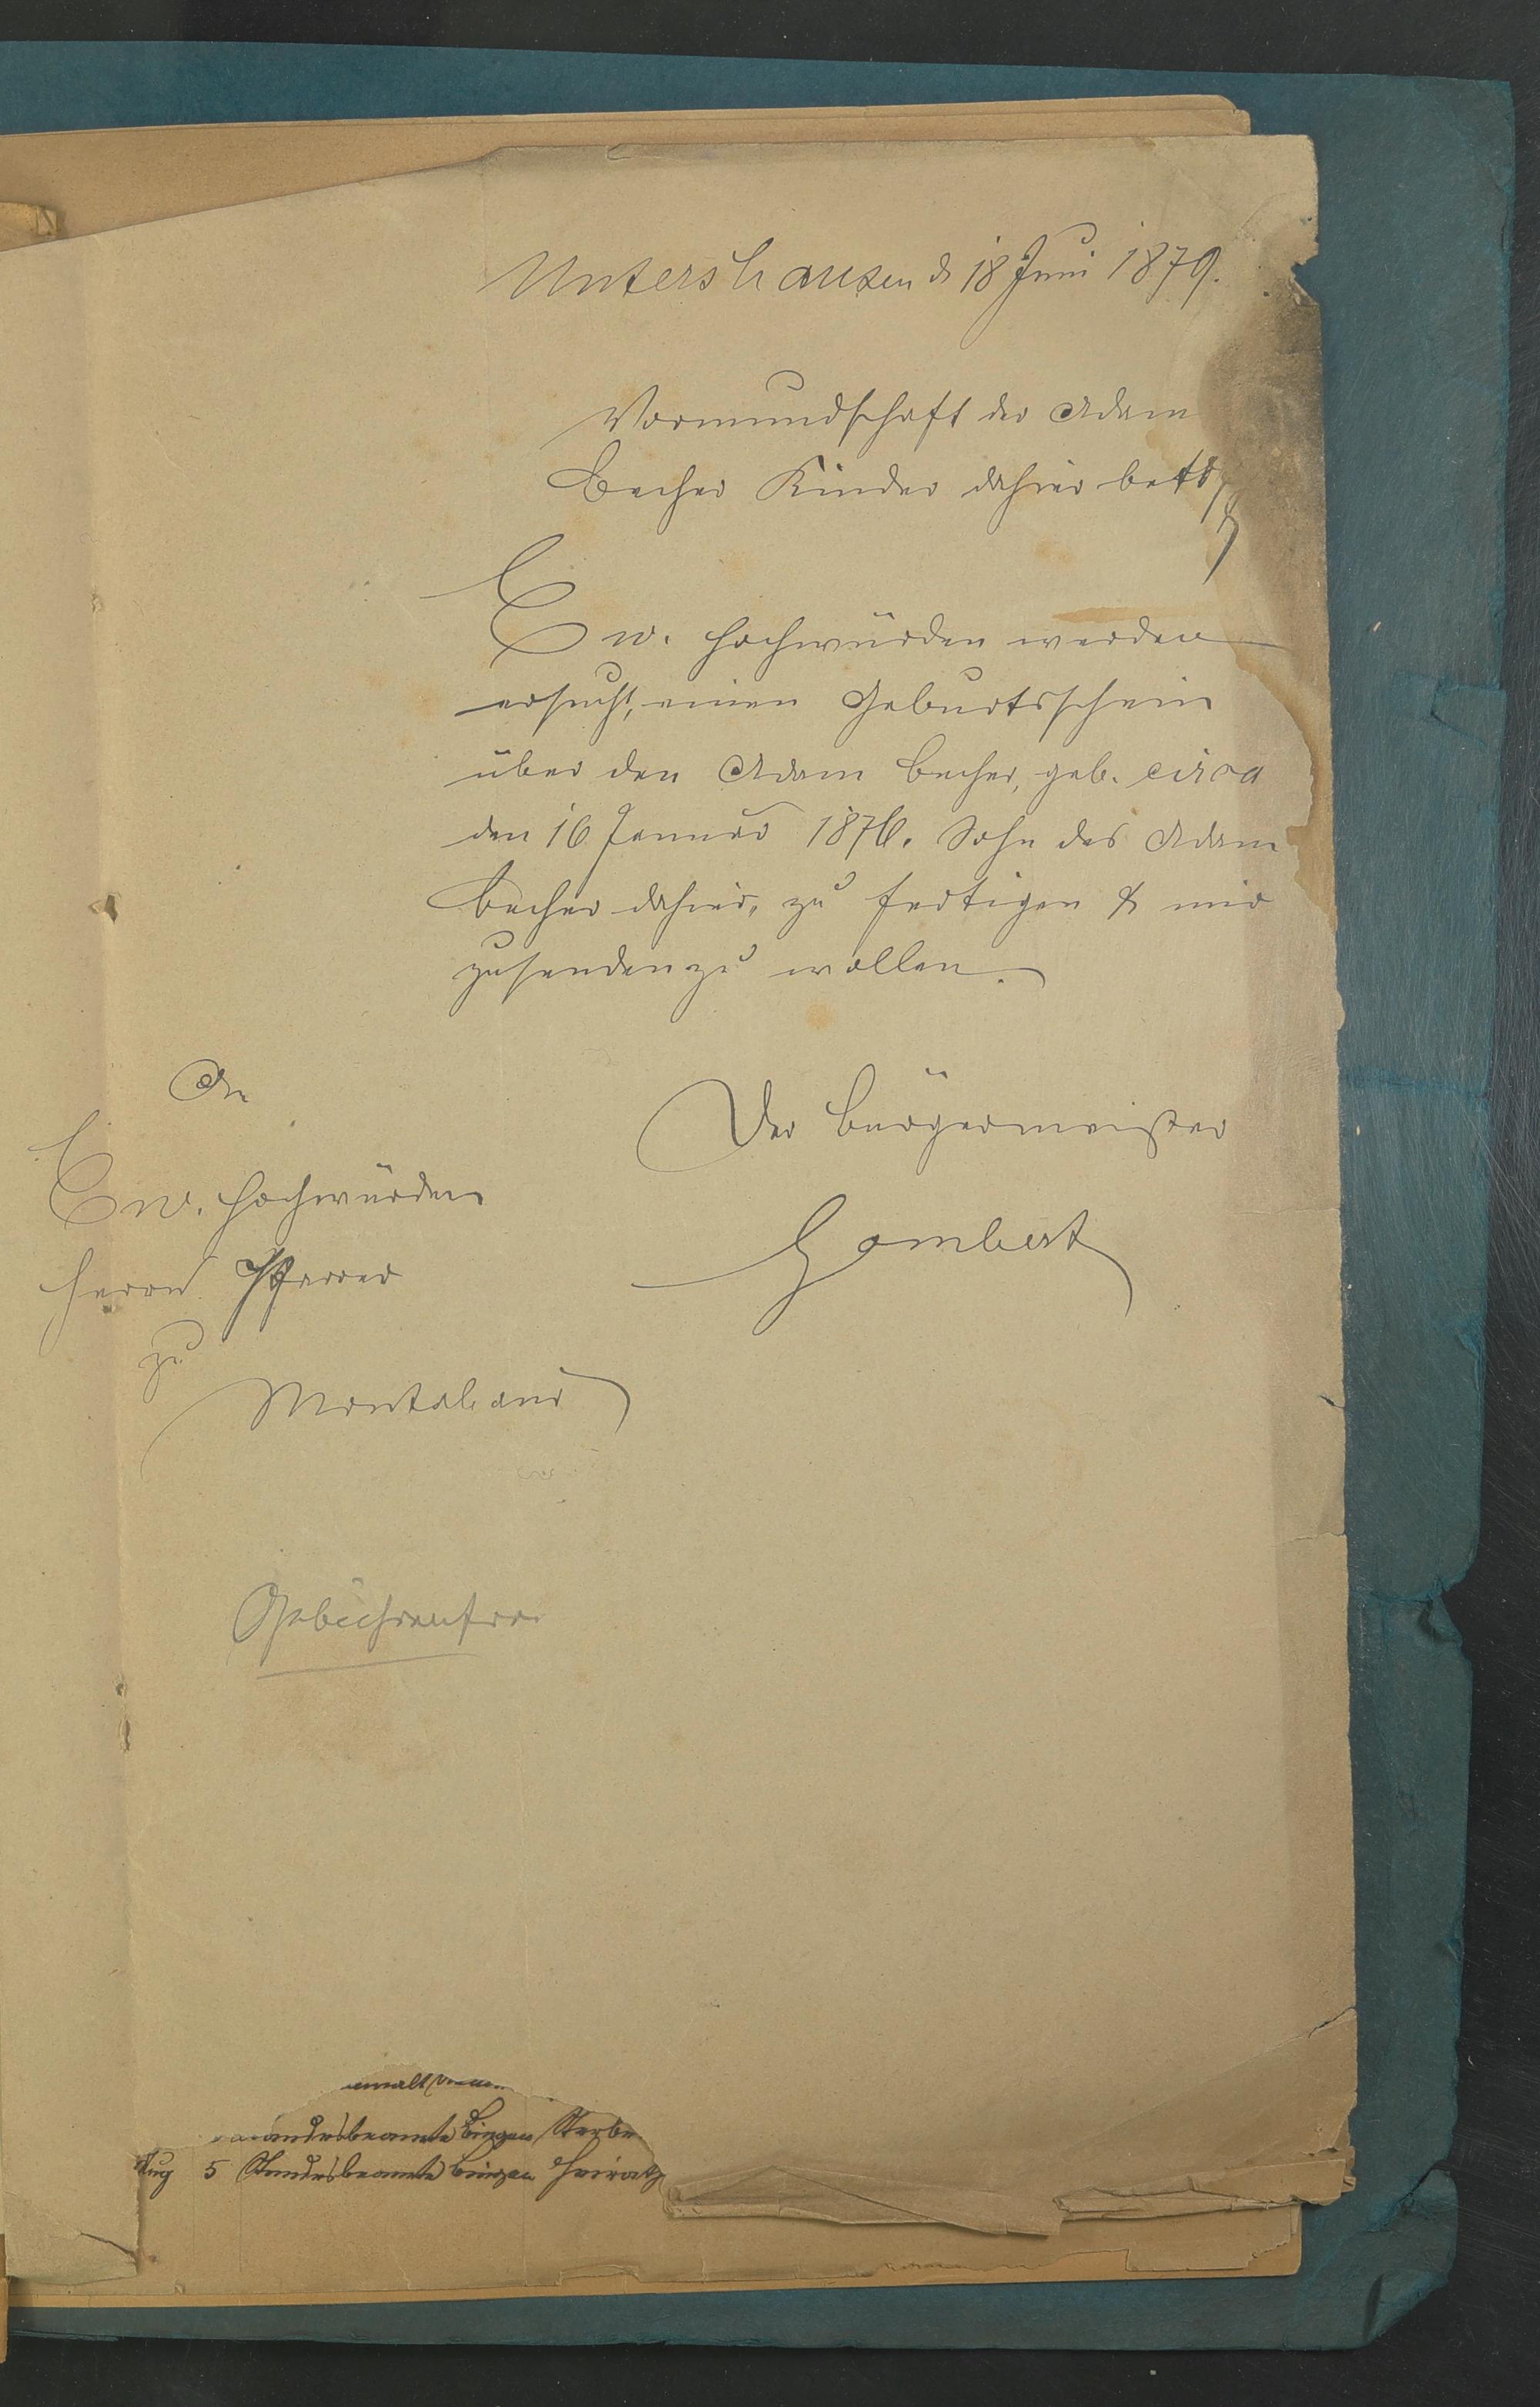 Untershausen d. 18 Juni 1879.
Vormundschaft der Adam
Becher Kinder dahier betr.
Ew. Hochwürden werden
ersucht, einen Geburtsschein
über den Adam Becher, geb. circa
den 16 Januar 1876. Sohn des Adam
Becher dahier, zu fertigen & mir
zusenden zu wollen.
An
Der Bürgermeister
Ew. Hochwürden
Gombert
Herrn Pfarrer
zu
Montabaur
Gebührenfrei
andesbeamte Bingen Sterbe
Aug 5 Standesbeamte Bingen Heirath